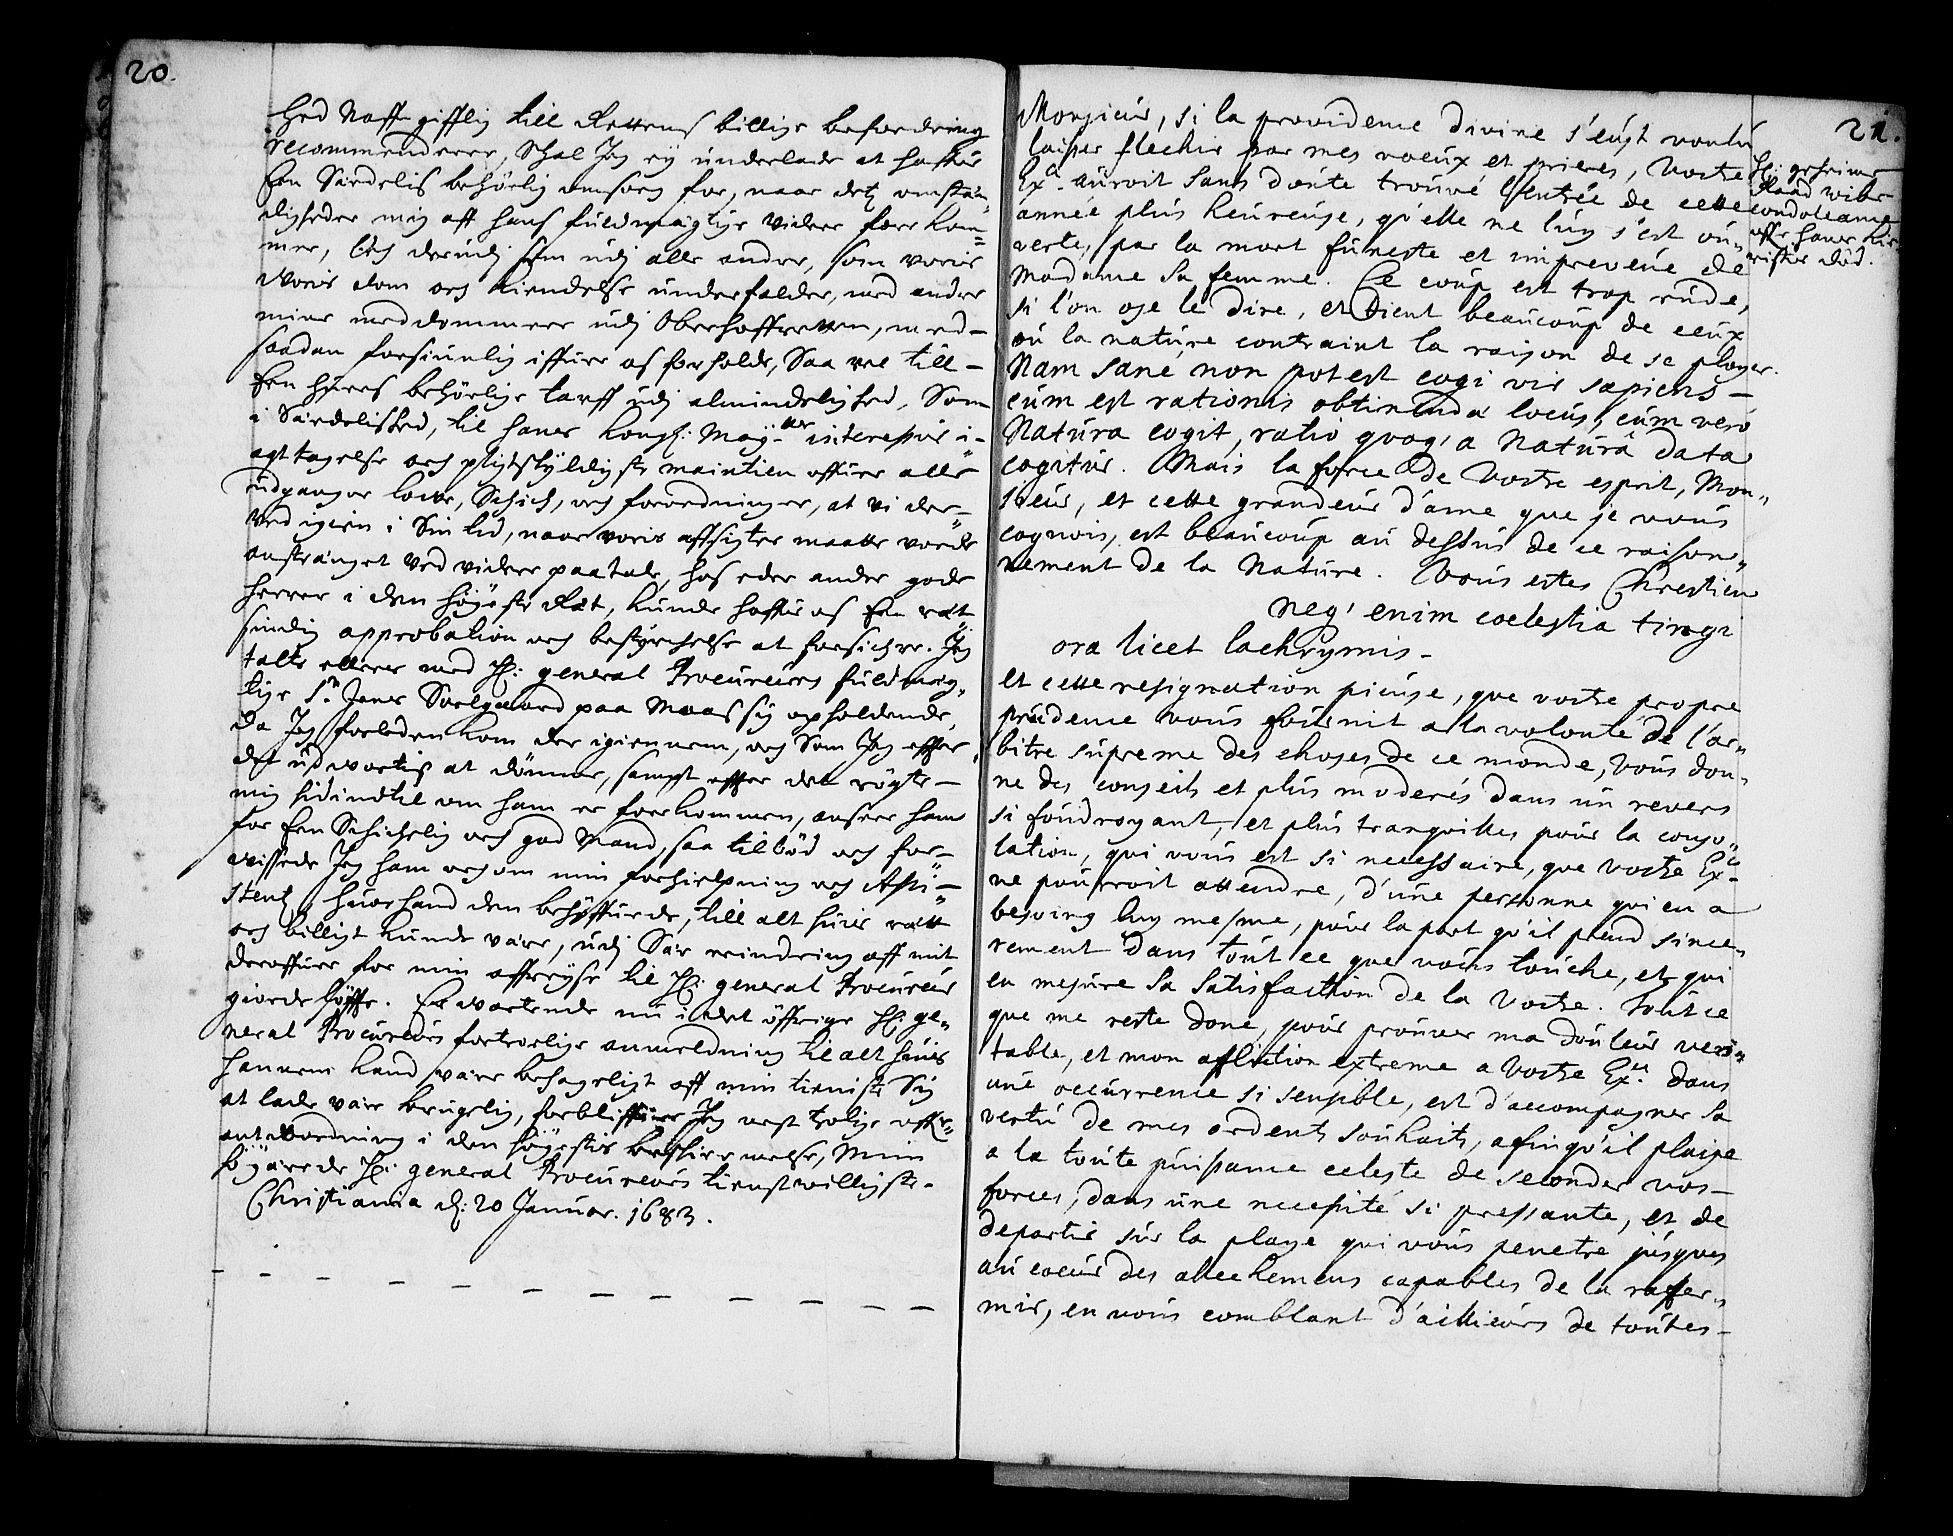 20.
hed Naffngifflig till Rettens billige befordring
recommenderer, Schal Jeg ej underlade at haffue
Een Særdelis behørlig omsorg for, naar detz omstæn„
digheder mig aff hans fuldmægtige videre fore kom„
mer, Och derudj som udj alle andre, som voris
Voris dom och kiendelse underfalder, med andre
mine meddommere udj Oberhoffretten, med-
saadan forsiunlig iffuer os forholde, Saa vel till-
Een huers behørlige tarff udj almindelighed, Som
i Særdelished, til hans Kongl: May.ttes interesse i-
agttagelse och pligtskyldigste maintien offuer alle
udgangne lowe, Schich, och forordninger, at vi der„
Ved igien i Sin tid, naar voris affsigter maatte vorde
anstrænget Ved videre paatale, hos eder andre gode
Herrer i den højeste Ret, kunde haffue os Een ret
sindig approbation och bestyrchelse at forsichre. Jeg
talte ellers med H: general Procureurs fuldmæg„
tige Sr. Jens Soelgaard paa Moss sig opholdende,
da Jeg forleden kom der igiennem, och Som Jeg effter
det udvortis at dømme, sampt effter det røgte-
mig hidindtil om ham er forekommen, anseer ham
for Een Schichelig och god Mand, saa tilbød och for„
vissede Jeg ham och om min forhielpning och Assi„
stentz, huor hand den behøffuede, till alt huis rætt
och billigt kunde være, udj Sær erindring aff mit
deroffuer for min affreyse til H: general Procureur
giorde løffte. Er wartende nu i det øffrige H: ge„
neral Procureurs fortrolige anmeldning til alt huis
hannem kand være behageligt aff min tieniste Sig
at lade være brugelig, forbliffuer Jeg nest trolige offr„
antvordning i den højestis beschiermelse, Min
højærede H: general Procureurs tienstwilligste.
Christiania d: 20 Januar. 1683.
21.
H: geheime
Raad wibe
condoleance
offr hans kiæ„
ristes død.
Monsieur, si la providence divine s'eust voulu
laisser flechir par mes voeux et prieres, Vostre
Ex.ce auroit sans doute trouvé l'entrée de cette
année plus heureuse, qu'elle ne luy s'est ou„
verte, par la mort funeste et imprevenue de
Madame sa femme. Ce coup est trop rude,
si l'on ose le dire, et tient beaucoup de ceux
ou la nature contraint la raison de se ployer.
Nam sane non potest cogi vir sapiens-
cum est rationis obtinendæ locus, cum vero
Natura cogit, ratio qvoq; a Naturâ data
cogitur. Mais la force de Vostre esprit, Mon„
sieur, et cette grandeur d'ame que je vous
cognois, est beaucoup au dessus de ce raison„
nement de la Nature. Vous estes Chrestien
neq; enim coelestia tingi
ora licet lachrymis-
et cette resignation pieuse, que vostre propre
prudence vous fournit a la volonté de l'ar„
bitre supreme des choses de ce monde, vous don„
ne des conseils et plus moderés dans un revers
si foudroyant, et plus tranquilles pour la conso„
lation, qui vous est si necessaire, que vostre Ex.ce
ne pourroit attendre, d'une personne qui en a
besoing luy mesme, pour la part qu'il prend since„
rement dans tout ce que vous touche, et qui
en mesure sa satisfaction de la Vostre. Tout ce
que me reste donc, pour prouver ma douleur veri„
table, et mon affliction extreme a Vostre Ex.ce dans
une occurrence si sensible, est d'accompagner sa
vertu de mes ardents souhaits, afin qu'il plaise
a la toute puissance celeste de seconder vos-
forces, dans une necessité si pressante, et de
departir sur la playe qui vous penetre jusques
au coeur des allechemens capables de la raffer„
mir, en vous comblant d'ailleurs de toutes-